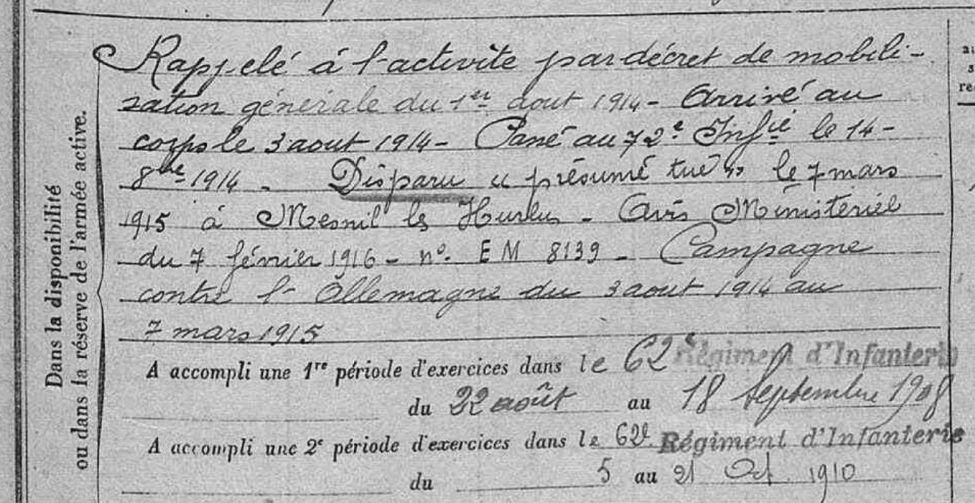 Dans la disponibilité
ou dans la réserve de l'armée active.
Rappelé à l'activité par décret de mobili-
sation générale du 1er aout 1914 - Arrivé au
corps le 3 aout 1914 - Passé au 72e Infie le 14-
8bre 1914 - Disparu « présumé tué » le 7 mars
1915 à Mesnil les Hurlus - Avis Ministériel
du 7 février 1916 - no. EM 8139 - Campagne
contre l'Allemagne du 3 aout 1914 au
7 mars 1915
A accompli une 1re période d'exercices dans le 62e Régiment d'Infanterie
du 22 août au 18 septembre 1908
A accompli une 2e période d'exercices dans le 62e Régiment d'Infanterie
du 5 au 21 Oct. 1910